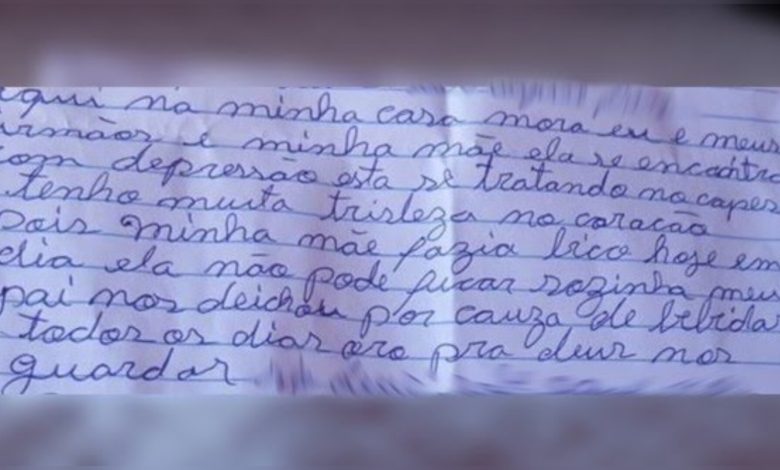 aqui na minha casa mora eu e meus
irmãos e minha mãe ela se encontra
com depressão esta se tratando no capes
tenho muita tristeza no coracão
pois minha mãe fazia bico hoje em
dia ela não pode ficar sozinha meu
pai nos deichou por cauza de bebida
todos os dias oro pra deus nos
guardar